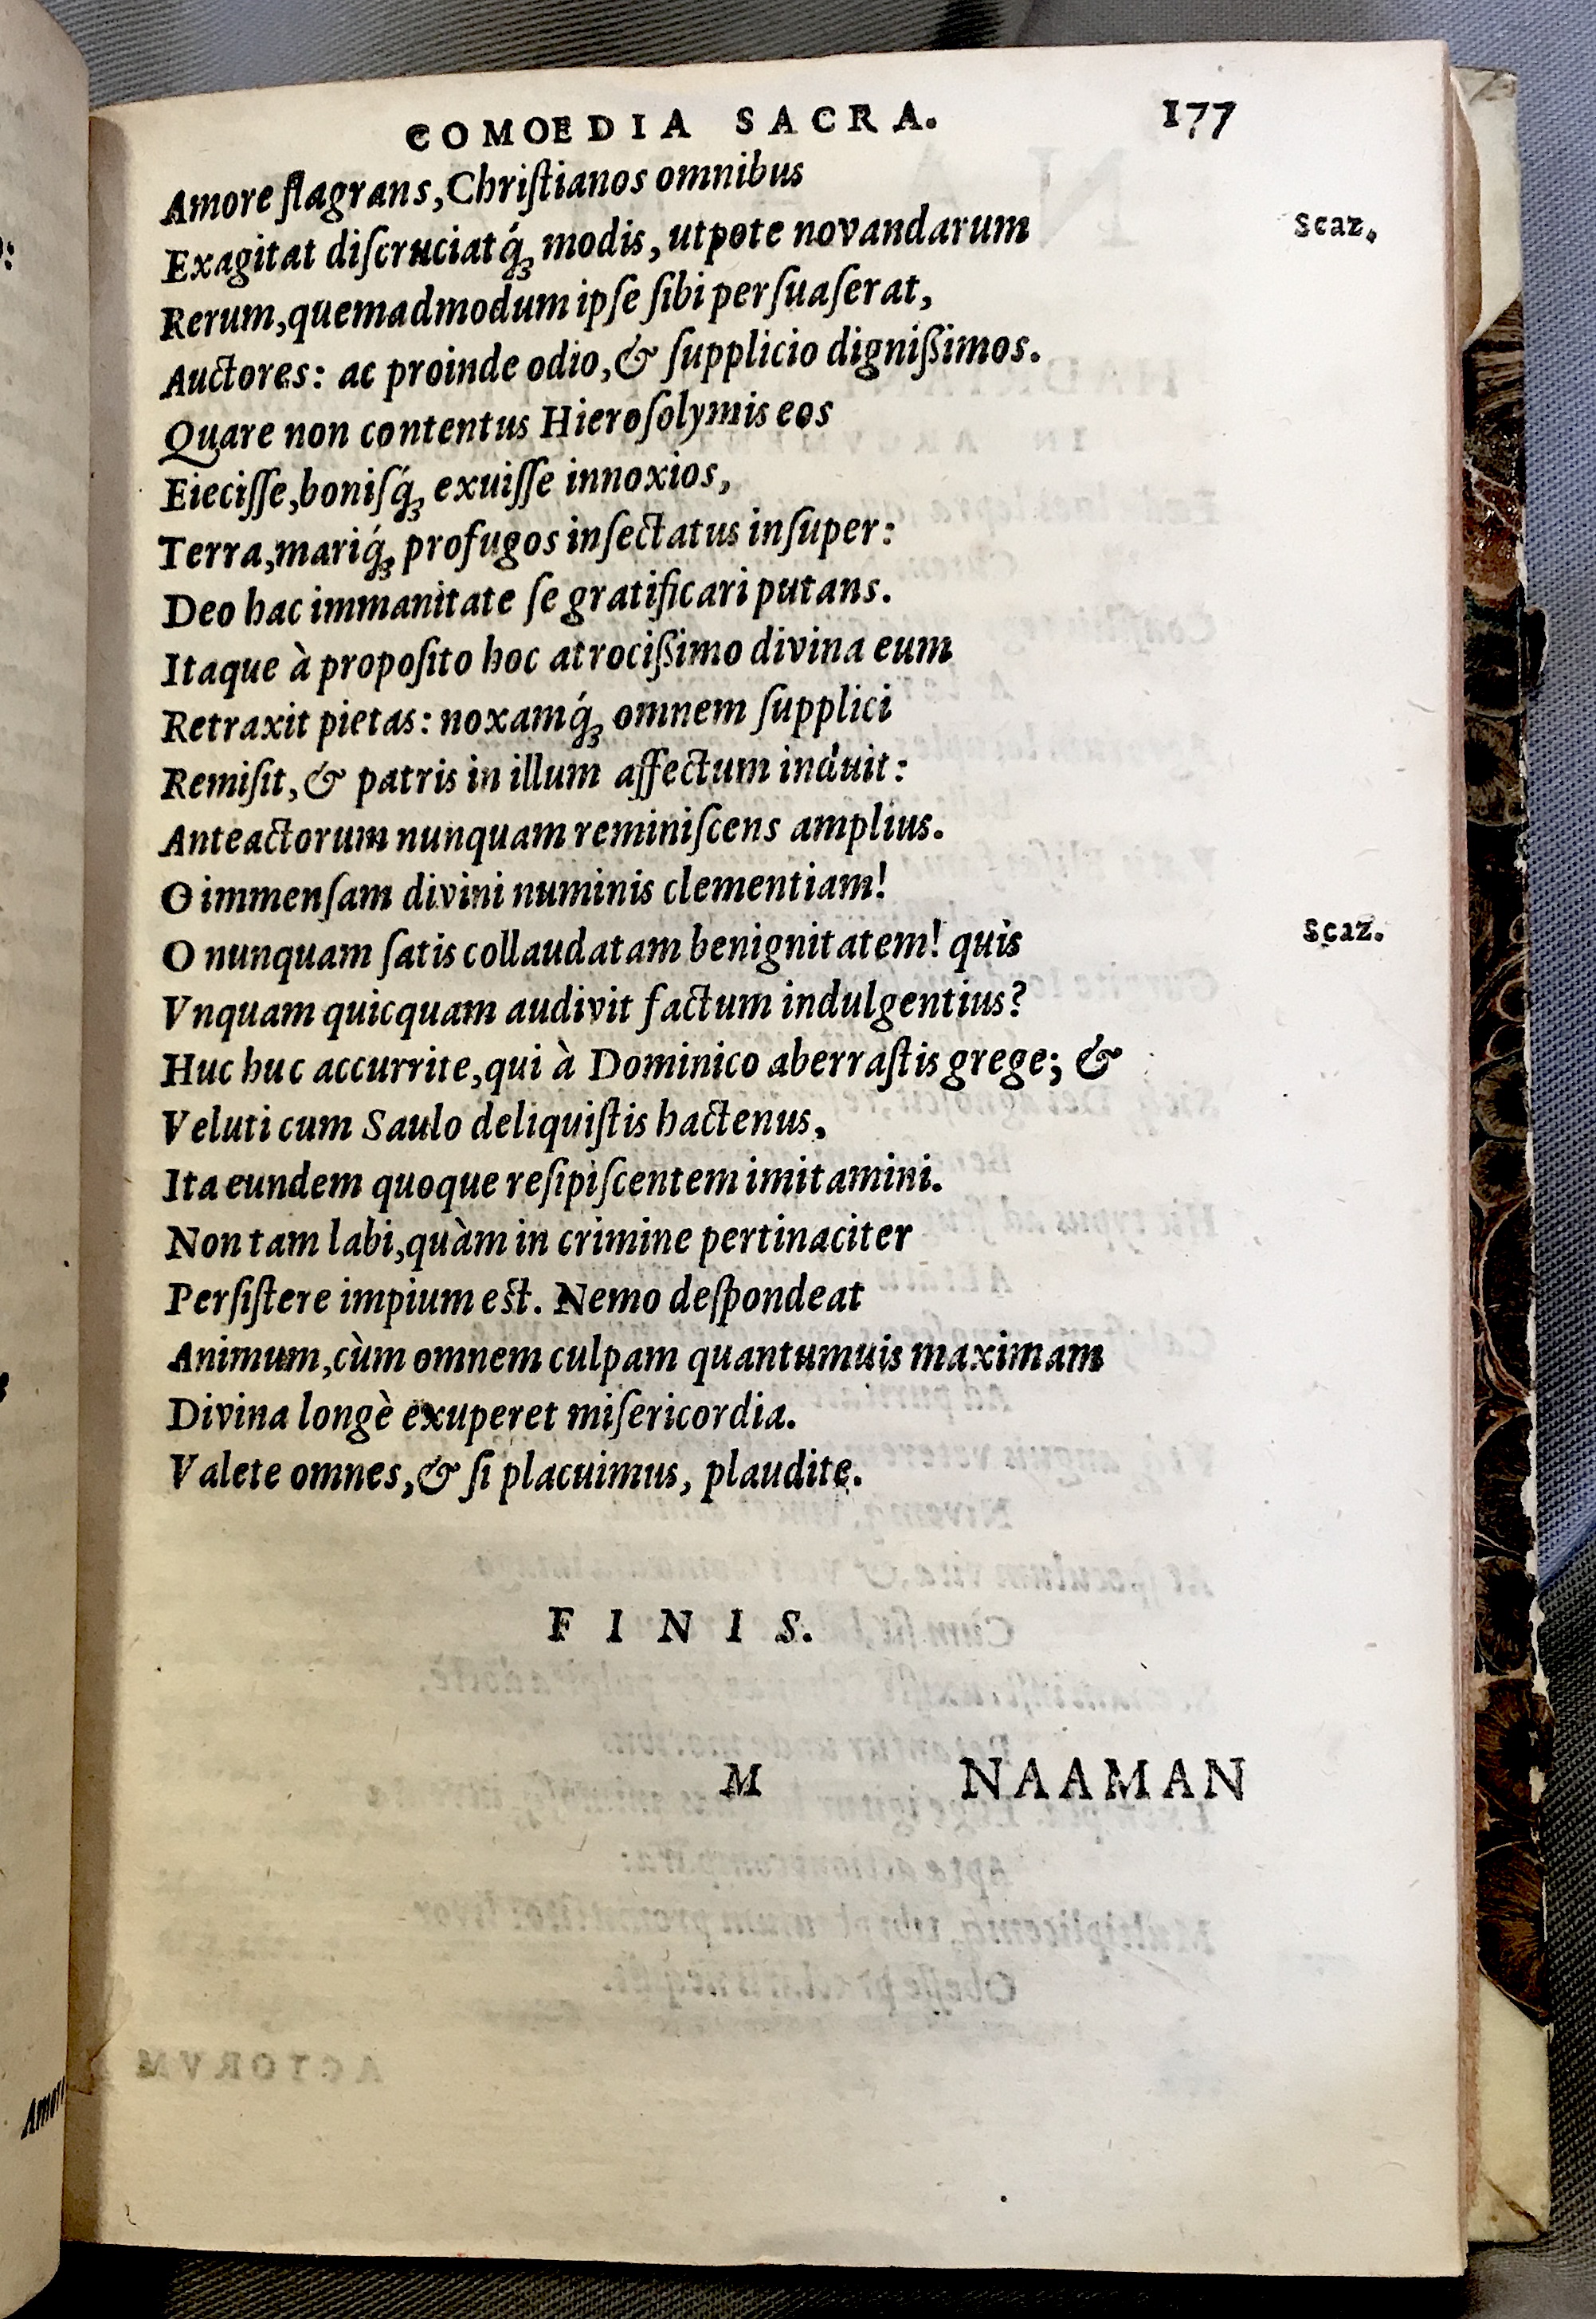 COMOEDIA SACRA. 177
Amore flagrans, Chriſtianos omnibus
Exagitat diſcruciatq́; modis, utpote novandarum Scaz.
Rerum, quemadmodum ipſe ſibi perſuaſerat,
Auctores: ac proinde odio, & ſupplicio digniſſimos.
Quare non contentus Hieroſolymis eos
Eieciſſe, boniſq́; exuiſſe innoxios,
Terra, mariq́; profugos inſectatus inſuper:
Deo hac immanitate ſe gratificari putans.
Itaque à propoſito hoc atrociſſimo divina eum
Retraxit pietas: noxamq́; omnem ſupplici
Remiſit, & patris in illum affectum induit:
Anteactorum nunquam reminiſcens amplius.
O immenſam divini numinis clementiam!
O nunquam ſatis collaudatam benignitatem! quis Scaz.
Vnquam quicquam audivit factum indulgentius?
Huc huc accurrite, qui à Dominico aberraſtis grege; &
Veluti cum Saulo deliquiſtis hactenus,
Ita eundem quoque reſipiſcentem imitamini.
Non tam labi, quàm in crimine pertinaciter
Perſiſtere impium eſt. Nemo deſpondeat
Animum, cùm omnem culpam quantumuis maximam
Divina longè exuperet miſericordia.
Valete omnes, & ſi placuimus, plaudite.
FINIS.
M NAAMAN